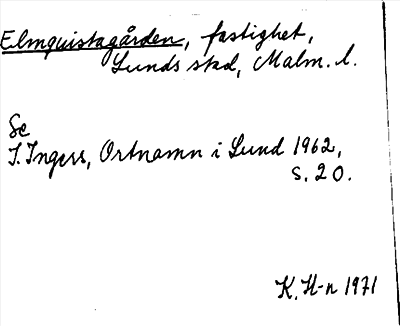 Elmquistagården, fastighet,
Lunds stad, Malm. l.
Se
I. Ingers, Ortnamn i Lund 1962,
s. 20.
K. H-n 1971